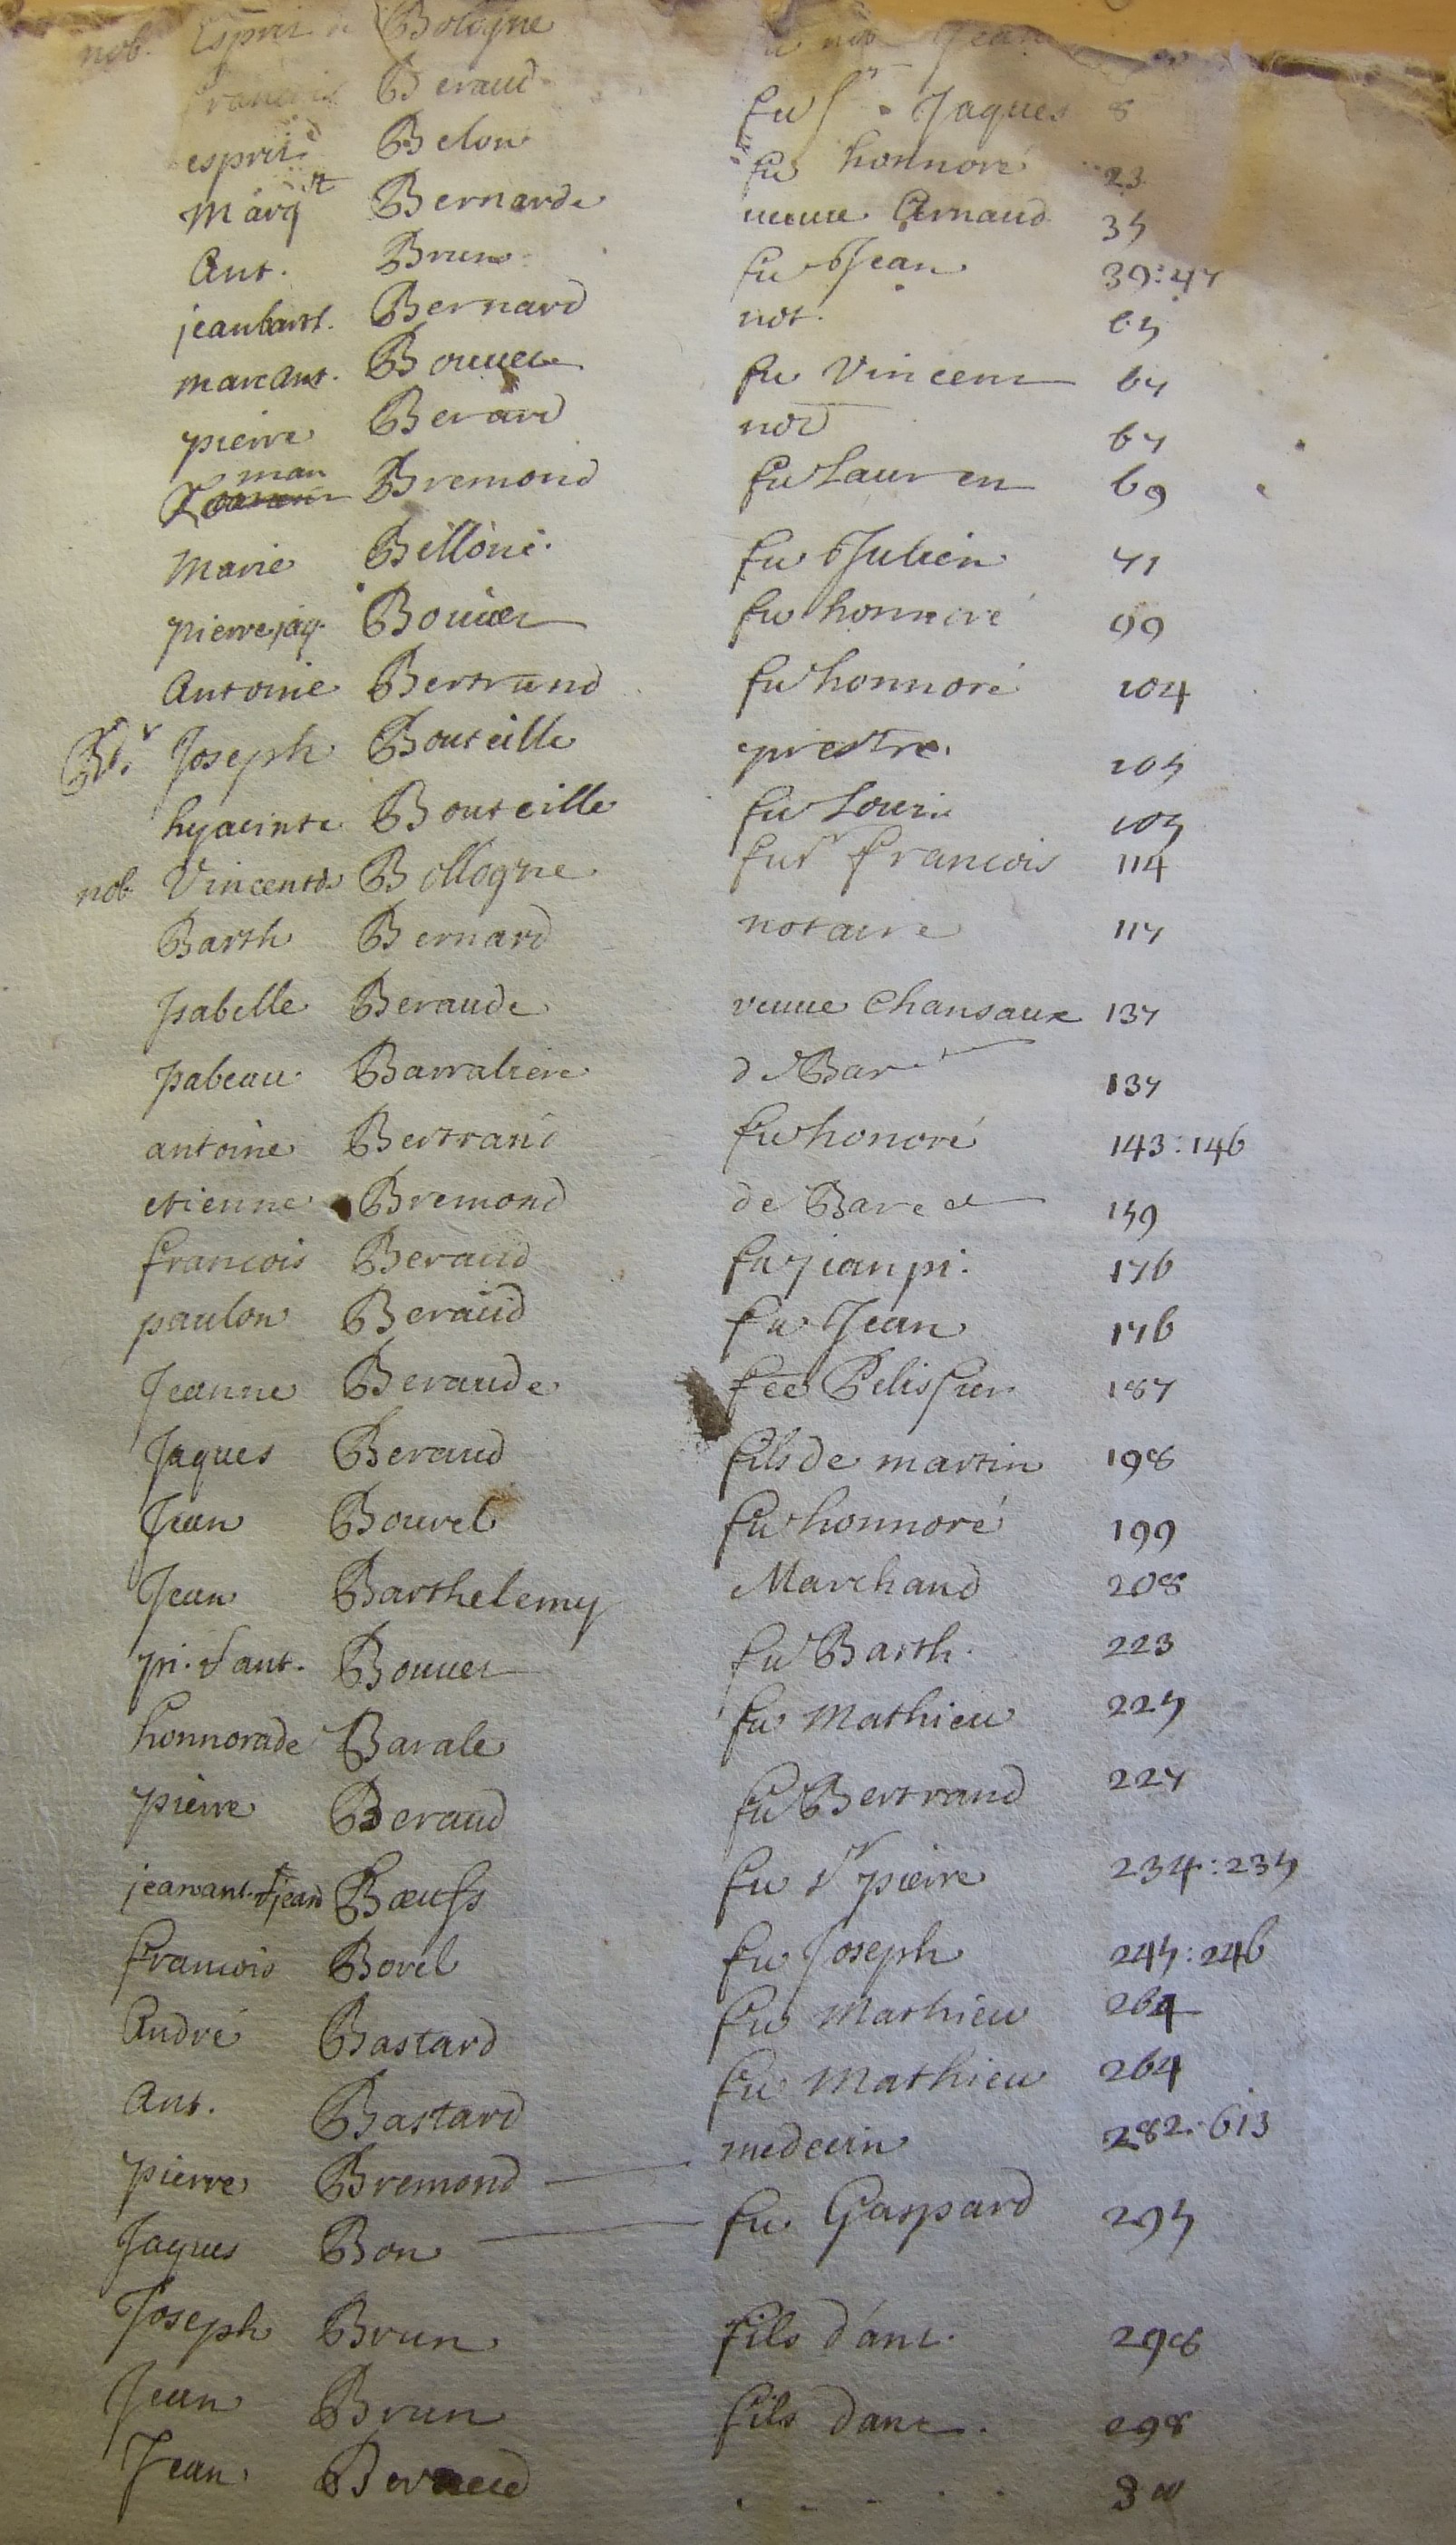 nob. Esprit de Bologne fu nob Jean
francois Beraud fu Sr. Jaques 8
esprit Belon fu honnoré 23
Margtt Bernarde veuue Arnaud 35
Ant. Brun fu Jean 39:47
jeanbart. Bernard not. 65
marcant. Bouuer fu Vincent 67
pierre Berard not 67
man Bremond fu Lauren 69
Marie Billone fu Julien 71
pierre jaq. Bouuer fu honnoré 99
Antoine Bertrand fu honnoré 104
Rdr. Joseph Bouteille prestre. 105
hyacinte Bouteille fu Louis 105
nob Vincent de Bollogne fu Sr francois 114
Barth Bernard notaire 117
Isabelle Beraude veuue Chansaux 137
Isabeau Barraliere d Bar 137
antoine Bertrand fu honoré 143:146
etienne Bremond de Barcet 159
francois Beraud fu jean pi. 176
paulon Beraud fu Jean 176
Jeanne Beraude fee Pelissier 187
Jaques Beraud fils de martin 198
Jean Bourel fu honnoré 199
Jean Barthelemy Marchand 208
pi. & ant. Bouuer fu Barth. 223
honnorade Barale fu Mathieu 225
pierre Beraud fu Bertrand 227
jean ant. & jean Bœufs fu Sr pierre 234:235
francois Borel fu Joseph 245:246
André Bastard fu Mathieu 264
Ant. Bastard fu Mathieu 264
pierre Bremond medecin 282:613
Jaques Bon fu Gaspard 295
Joseph Brun fils d'ant. 298
Jean Brun fils dant. 298
Jean Beraud . . . . . 300